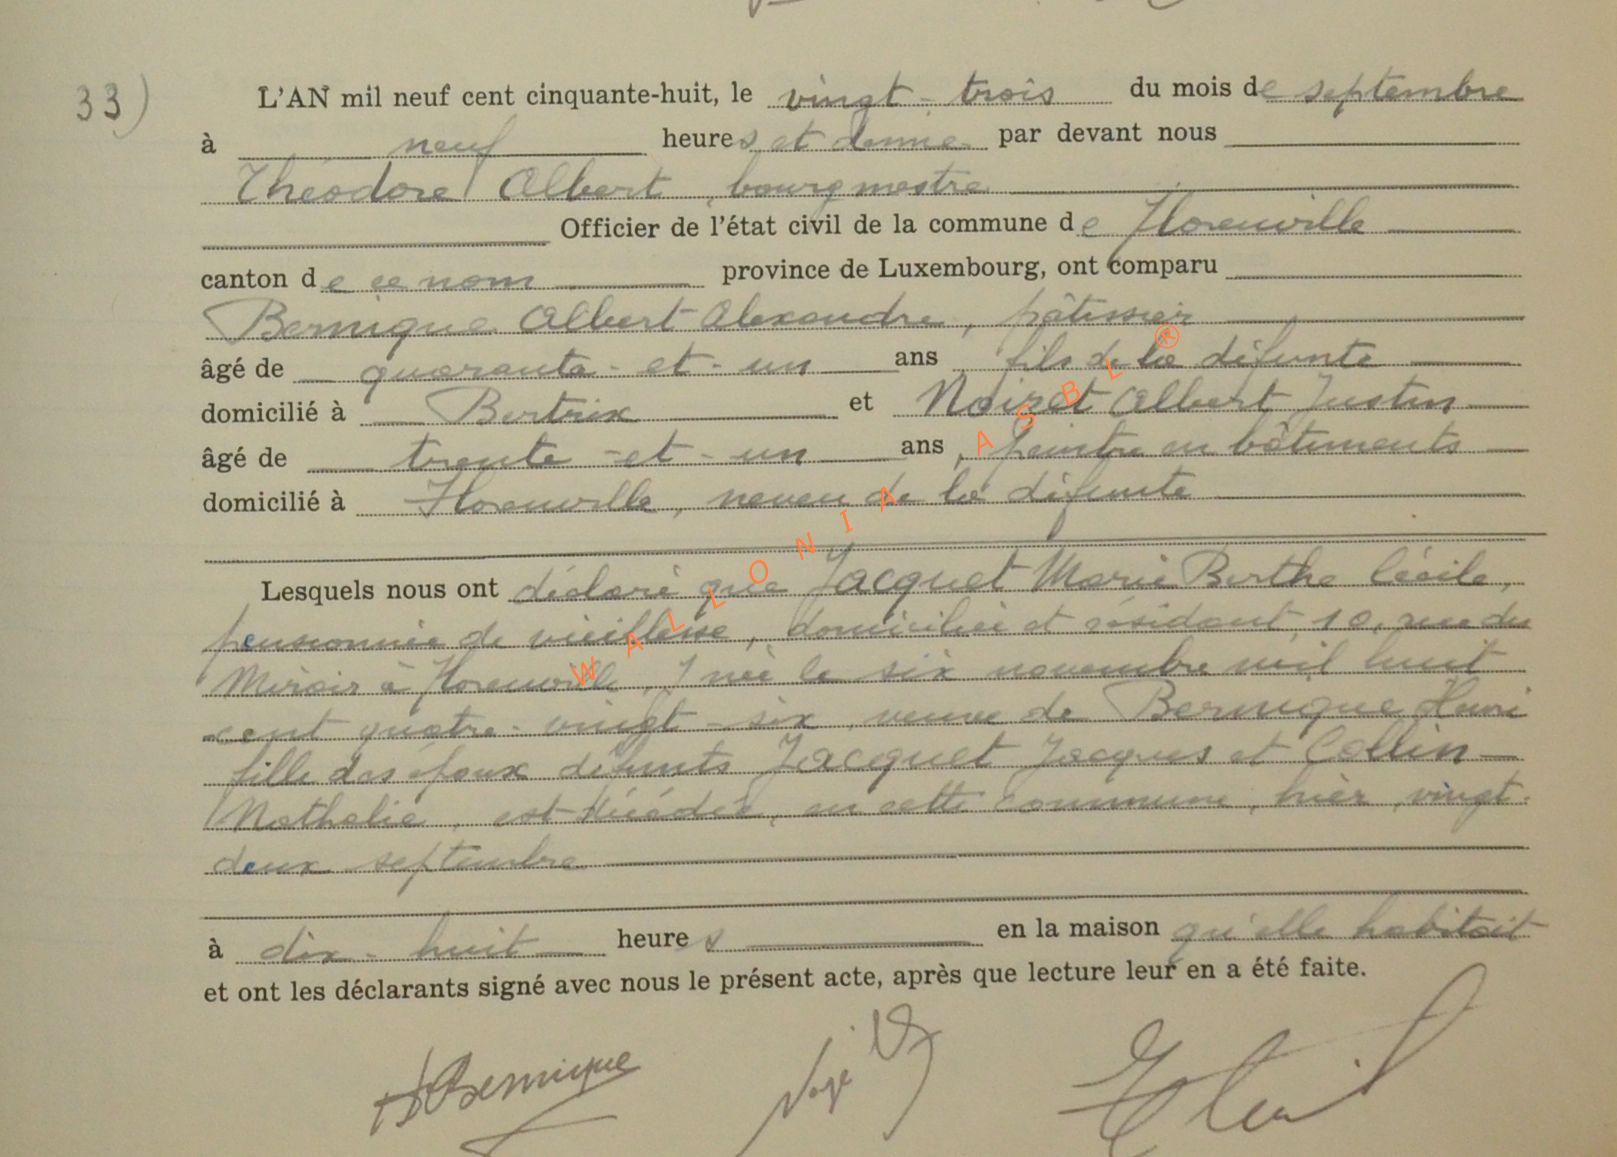 33)
L'AN mil neuf cent cinquante-huit, le vingt-trois du mois de septembre
à neuf heures et demie par devant nous
Théodore Albert, bourgmestre
Officier de l'état civil de la commune de Florenville
canton de ce nom province de Luxembourg, ont comparu
Bernique Albert Alexandre, pâtissier
âgé de quarante-et-un ans fils de la défunte
domicilié à Bertrix et Noizet Albert Justin
âgé de trente-et-un ans, peintre en bâtiments
domicilié à Florenville, neveu de la défunte
Lesquels nous ont déclaré que Jacquet Marie Berthe Cécile,
pensionnée de vieillesse, domiciliée et résidant, 10, rue du
Miroir à Florenville, née le six novembre mil huit
cent quatre-vingt-six, veuve de Bernique Henri
fille des époux défunts Jacquet Jacques et Collin
Nathalie, est décédée, en cette commune, hier, vingt-
deux septembre
à dix-huit heures en la maison qu'elle habitait
et ont les déclarants signé avec nous le présent acte, après que lecture leur en a été faite.
ABernique
WALLONIA ASBL ®